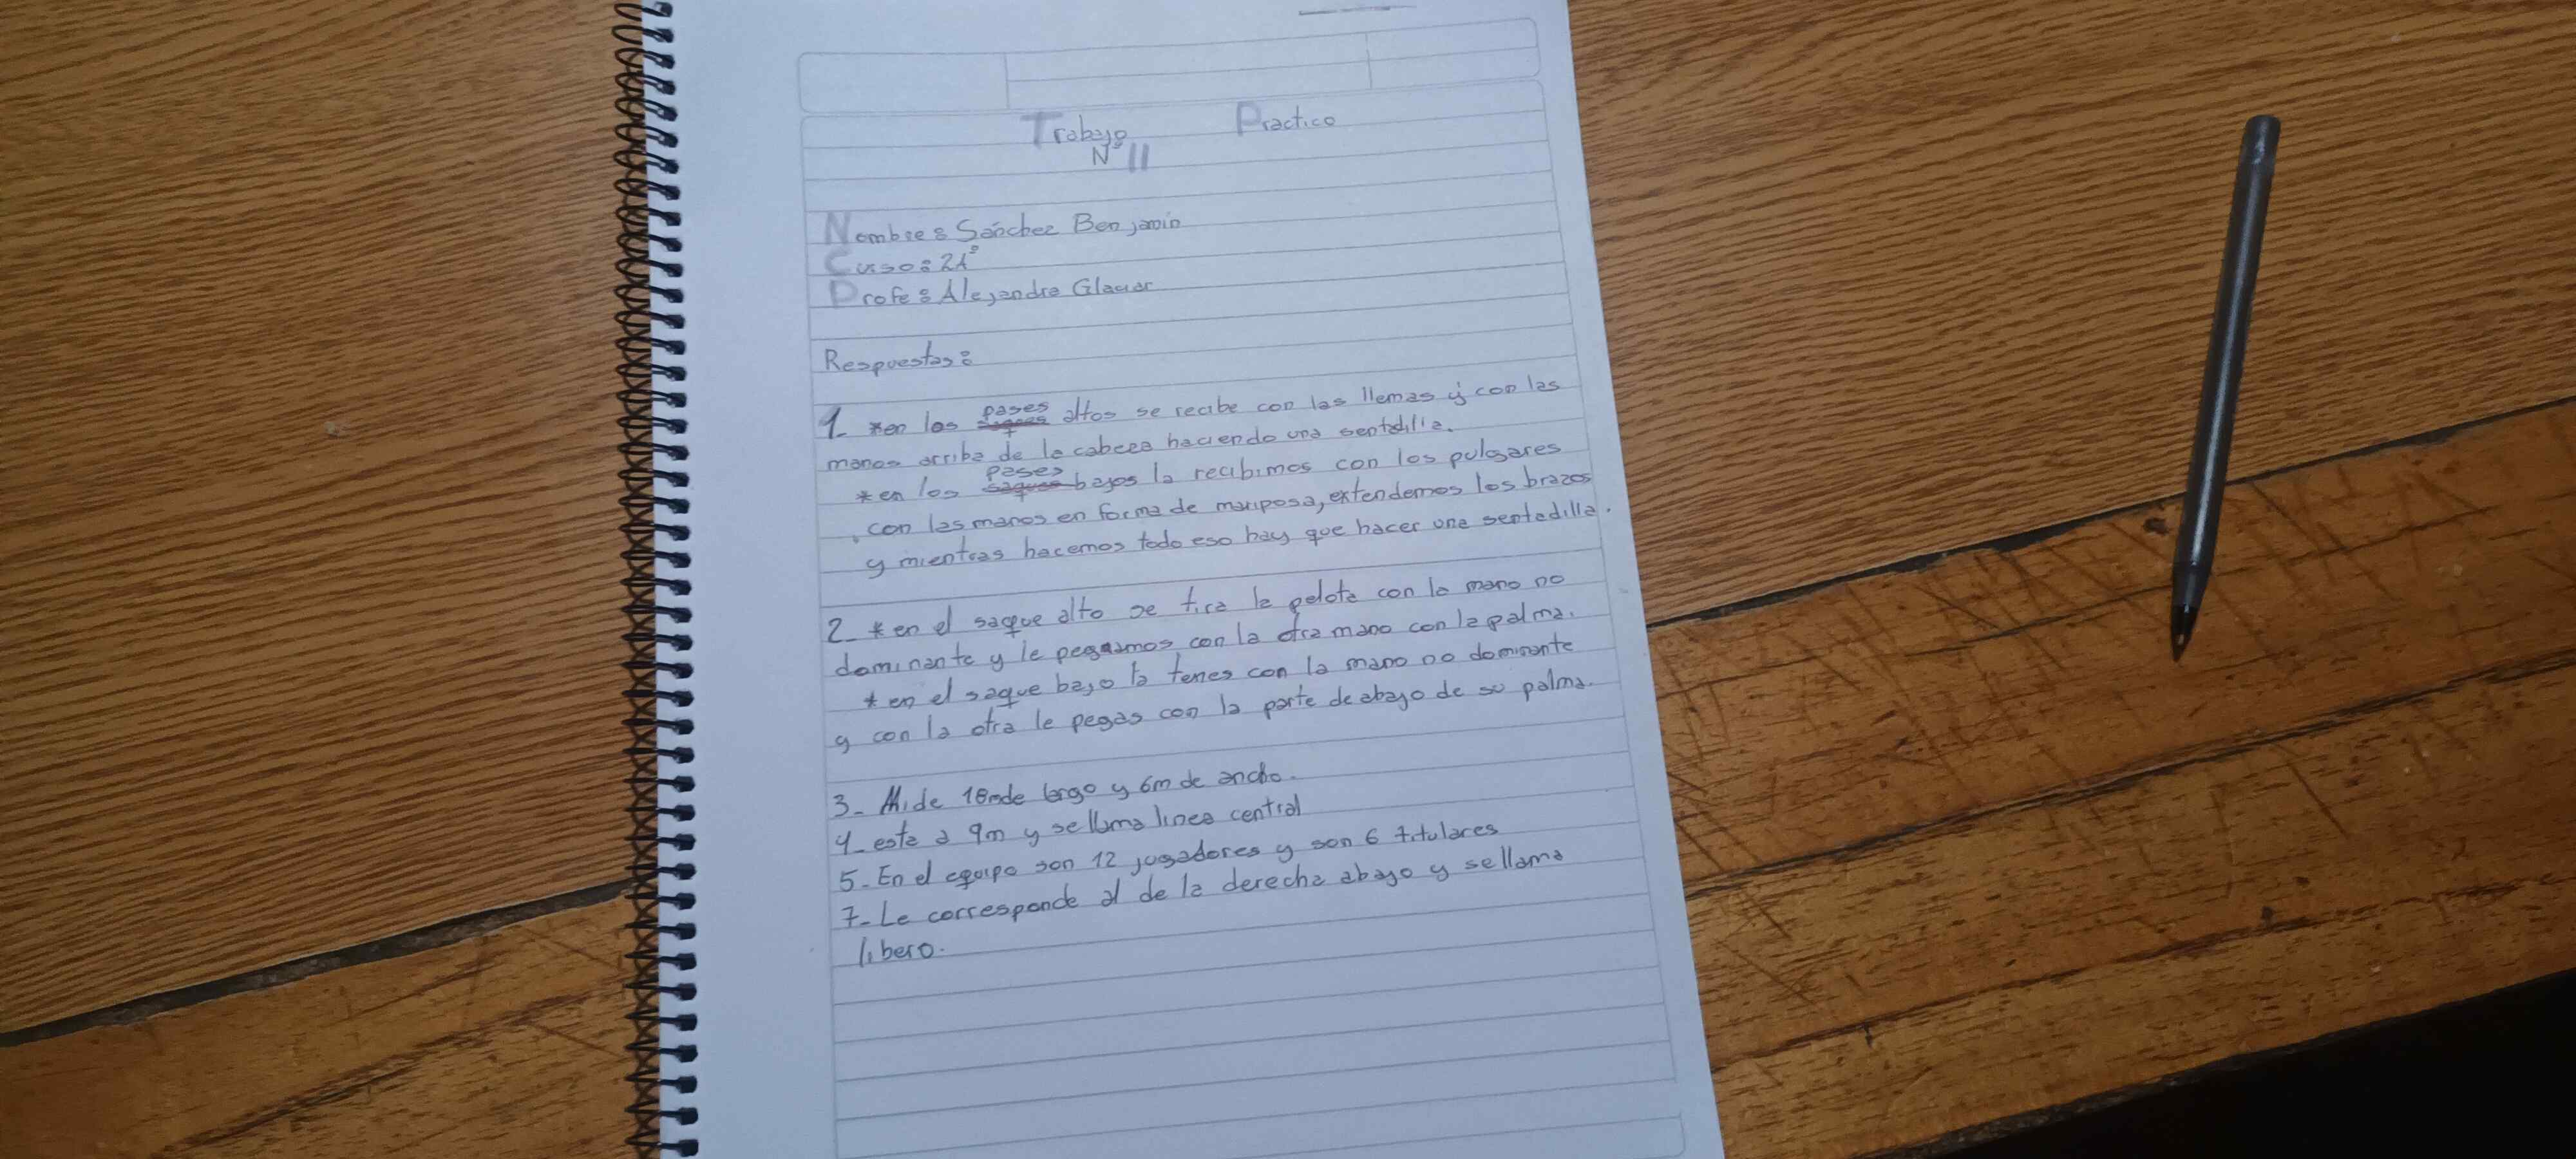 Trabajo Practico
N°11
Nombre: Sánchez Benjamin
Curso: 2A°
Profe: Alejandra
Respuestas:
1- *en los pases altos se recibe con las llemas y con las
manos arriba de la cabeza haciendo una sentadilla.
*en los pases bajos la recibimos con los pulgares
con las manos en forma de mariposa, extendemos los brazos
y mientras hacemos todo eso hay que hacer una sentadilla.
2- *en el saque alto se tira la pelota con la mano no
dominante y le pegamos con la otra mano con la palma.
*en el saque bajo la tenes con la mano no dominante
y con la otra le pegas con la parte de abajo de su palma.
3- Mide 18m de largo y 6m de ancho.
4- esta a 9m y se llama linea central
5- En el equipo son 12 jugadores y son 6 titulares
7- Le corresponde al de la derecha abajo y se llama
libero.